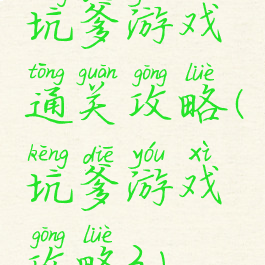 坑爹游戏
tōng guān gōng lüè
通关攻略(
kēng diē yóu xì
坑爹游戏
gōng lüè
攻略